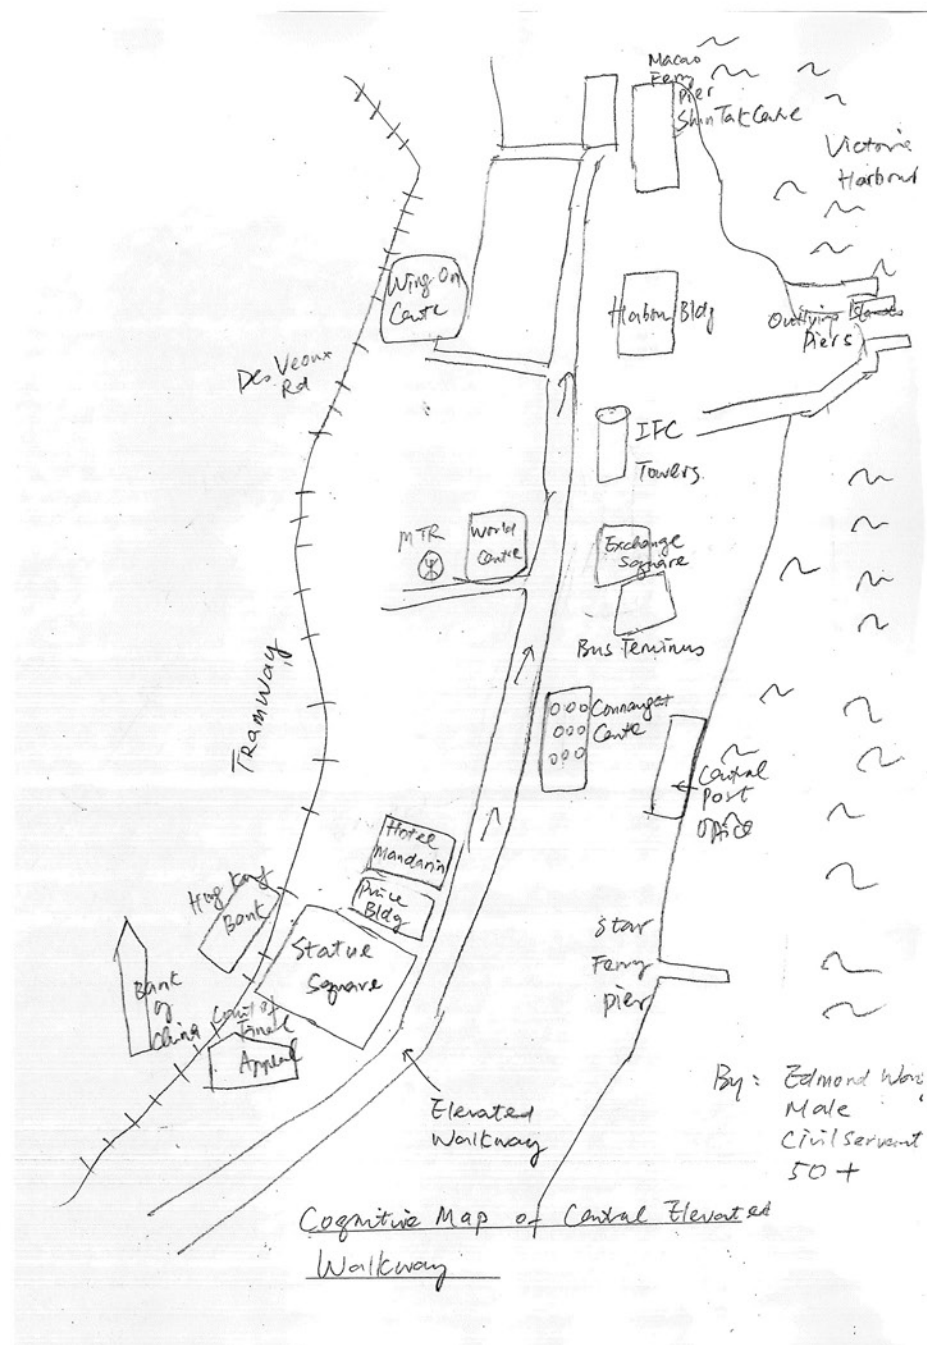 Macao
Ferry
Pier
Shun Tak Centre
Victoria
Harbour
Wing On
Centre
Harbour Bldg
Outlying Islands
Piers
Des Veoux
Rd
IFC
Towers
MTR
World
Centre
Exchange
Square
Bus Terminus
TRAMWAY
Connaught
Centre
Central
Post
Office
Hotel
Mandarin
Prince
Bldg
Hong Kong
Bank
Statue
Square
Star
Ferry
Pier
Bank
of
China
Court of
Final
Appeal
Elevated
Walkway
By: Edmond Wong
Male
Civil Servant
50+
Cognitive Map of Central Elevated
Walkway